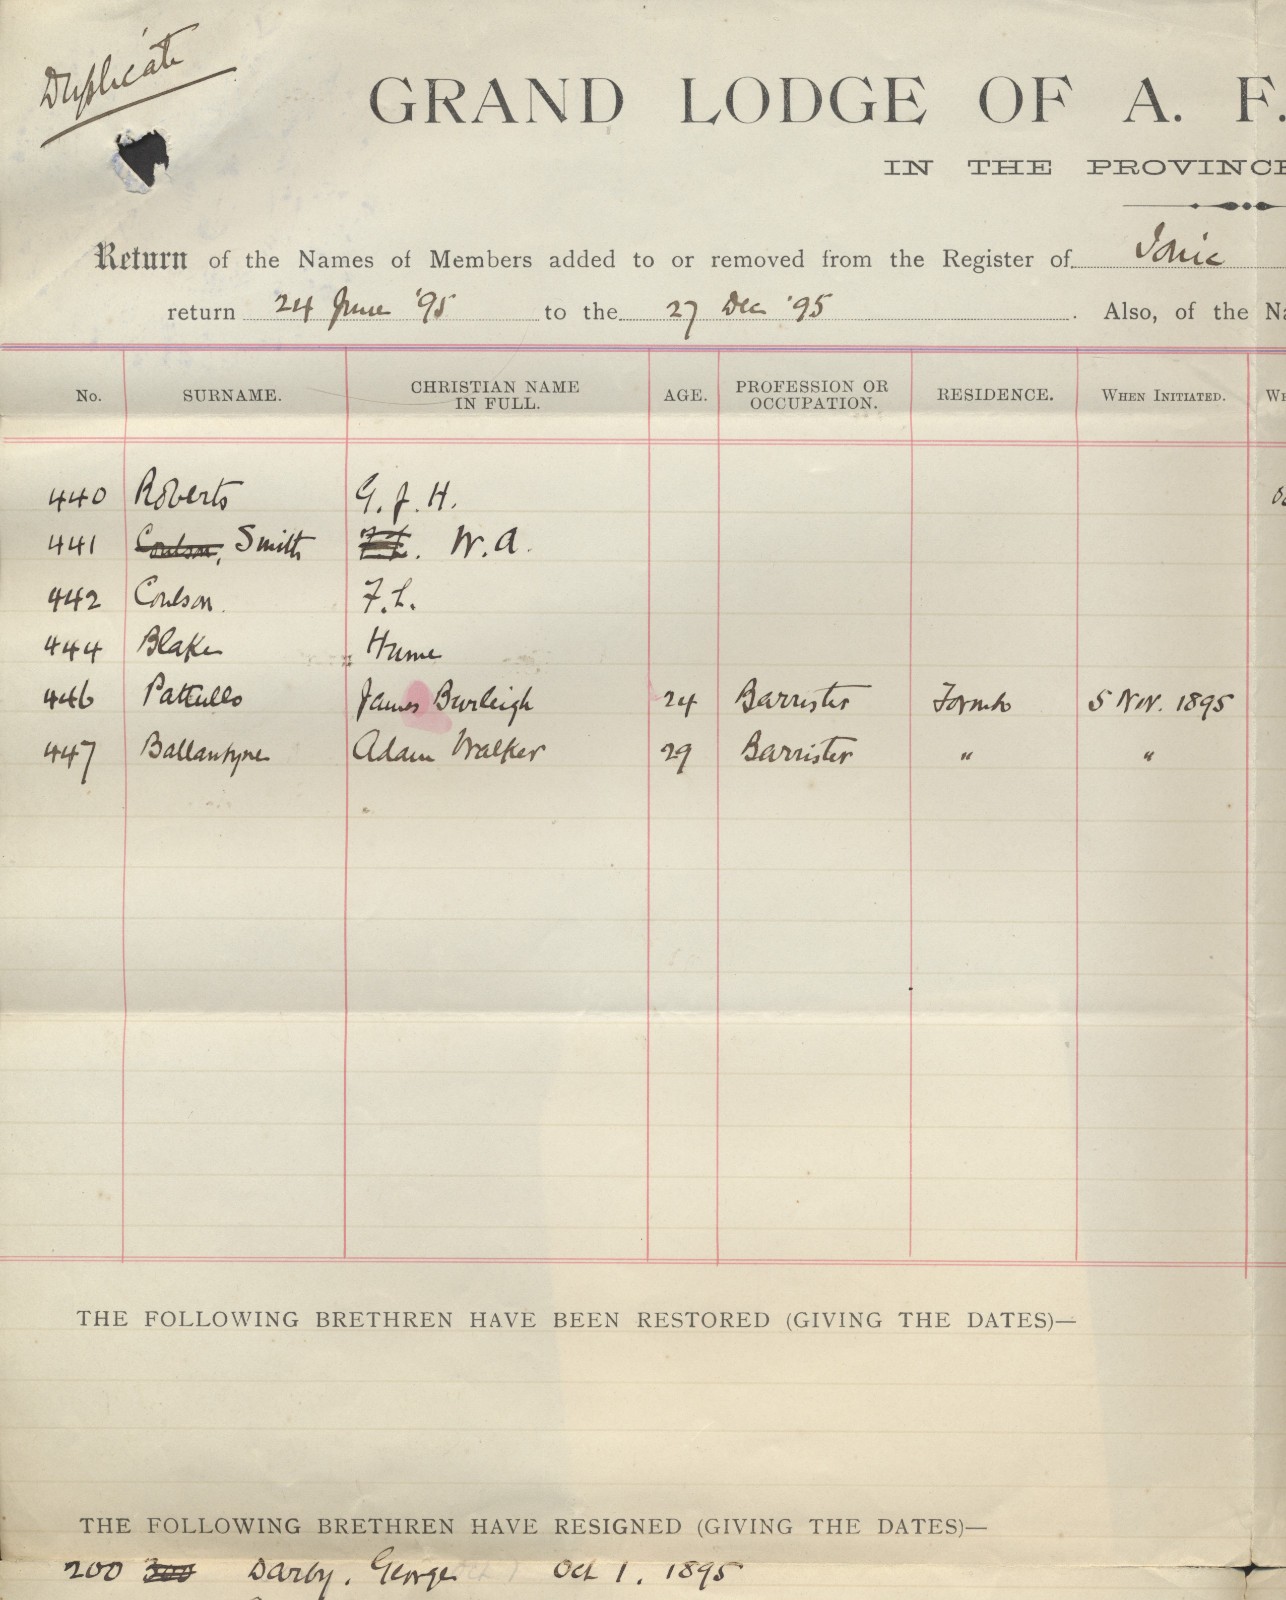 Duplicate
GRAND LODGE OF A. F.
IN THE PROVINCE
Return of the Names of Members added to or removed from the Register of Ionic
return 24 June '95 to the 27 Dec '95. Also, of the Na
No. SURNAME. CHRISTIAN NAME IN FULL. AGE. PROFESSION OR OCCUPATION. RESIDENCE. WHEN INITIATED. WH
440 Roberts G. J. H.
441 Coulson, Smith F. L. W. A.
442 Coulson F. L.
444 Blake Hume
446 Pattullo James Burleigh 24 Barrister Toronto 5 Nov. 1895
447 Ballantyne Adam Walker 29 Barrister " "
THE FOLLOWING BRETHREN HAVE BEEN RESTORED (GIVING THE DATES)—
THE FOLLOWING BRETHREN HAVE RESIGNED (GIVING THE DATES)—
200 300 Darby, George Oct 1, 1895